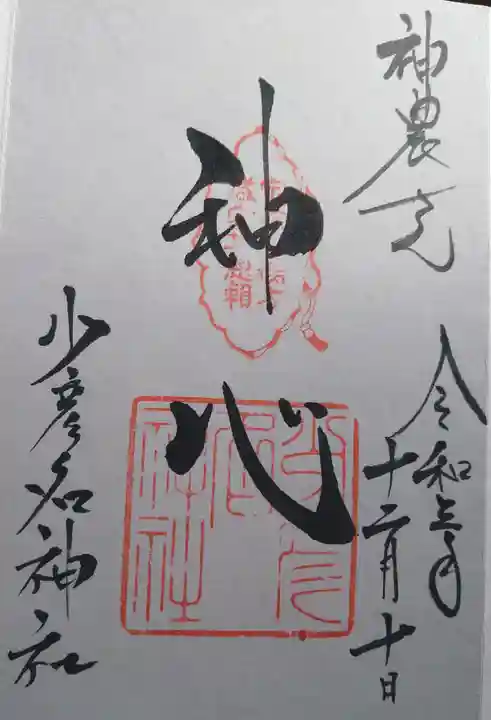 神農さん
令和三年
十二月十日
神心
少彦名神社